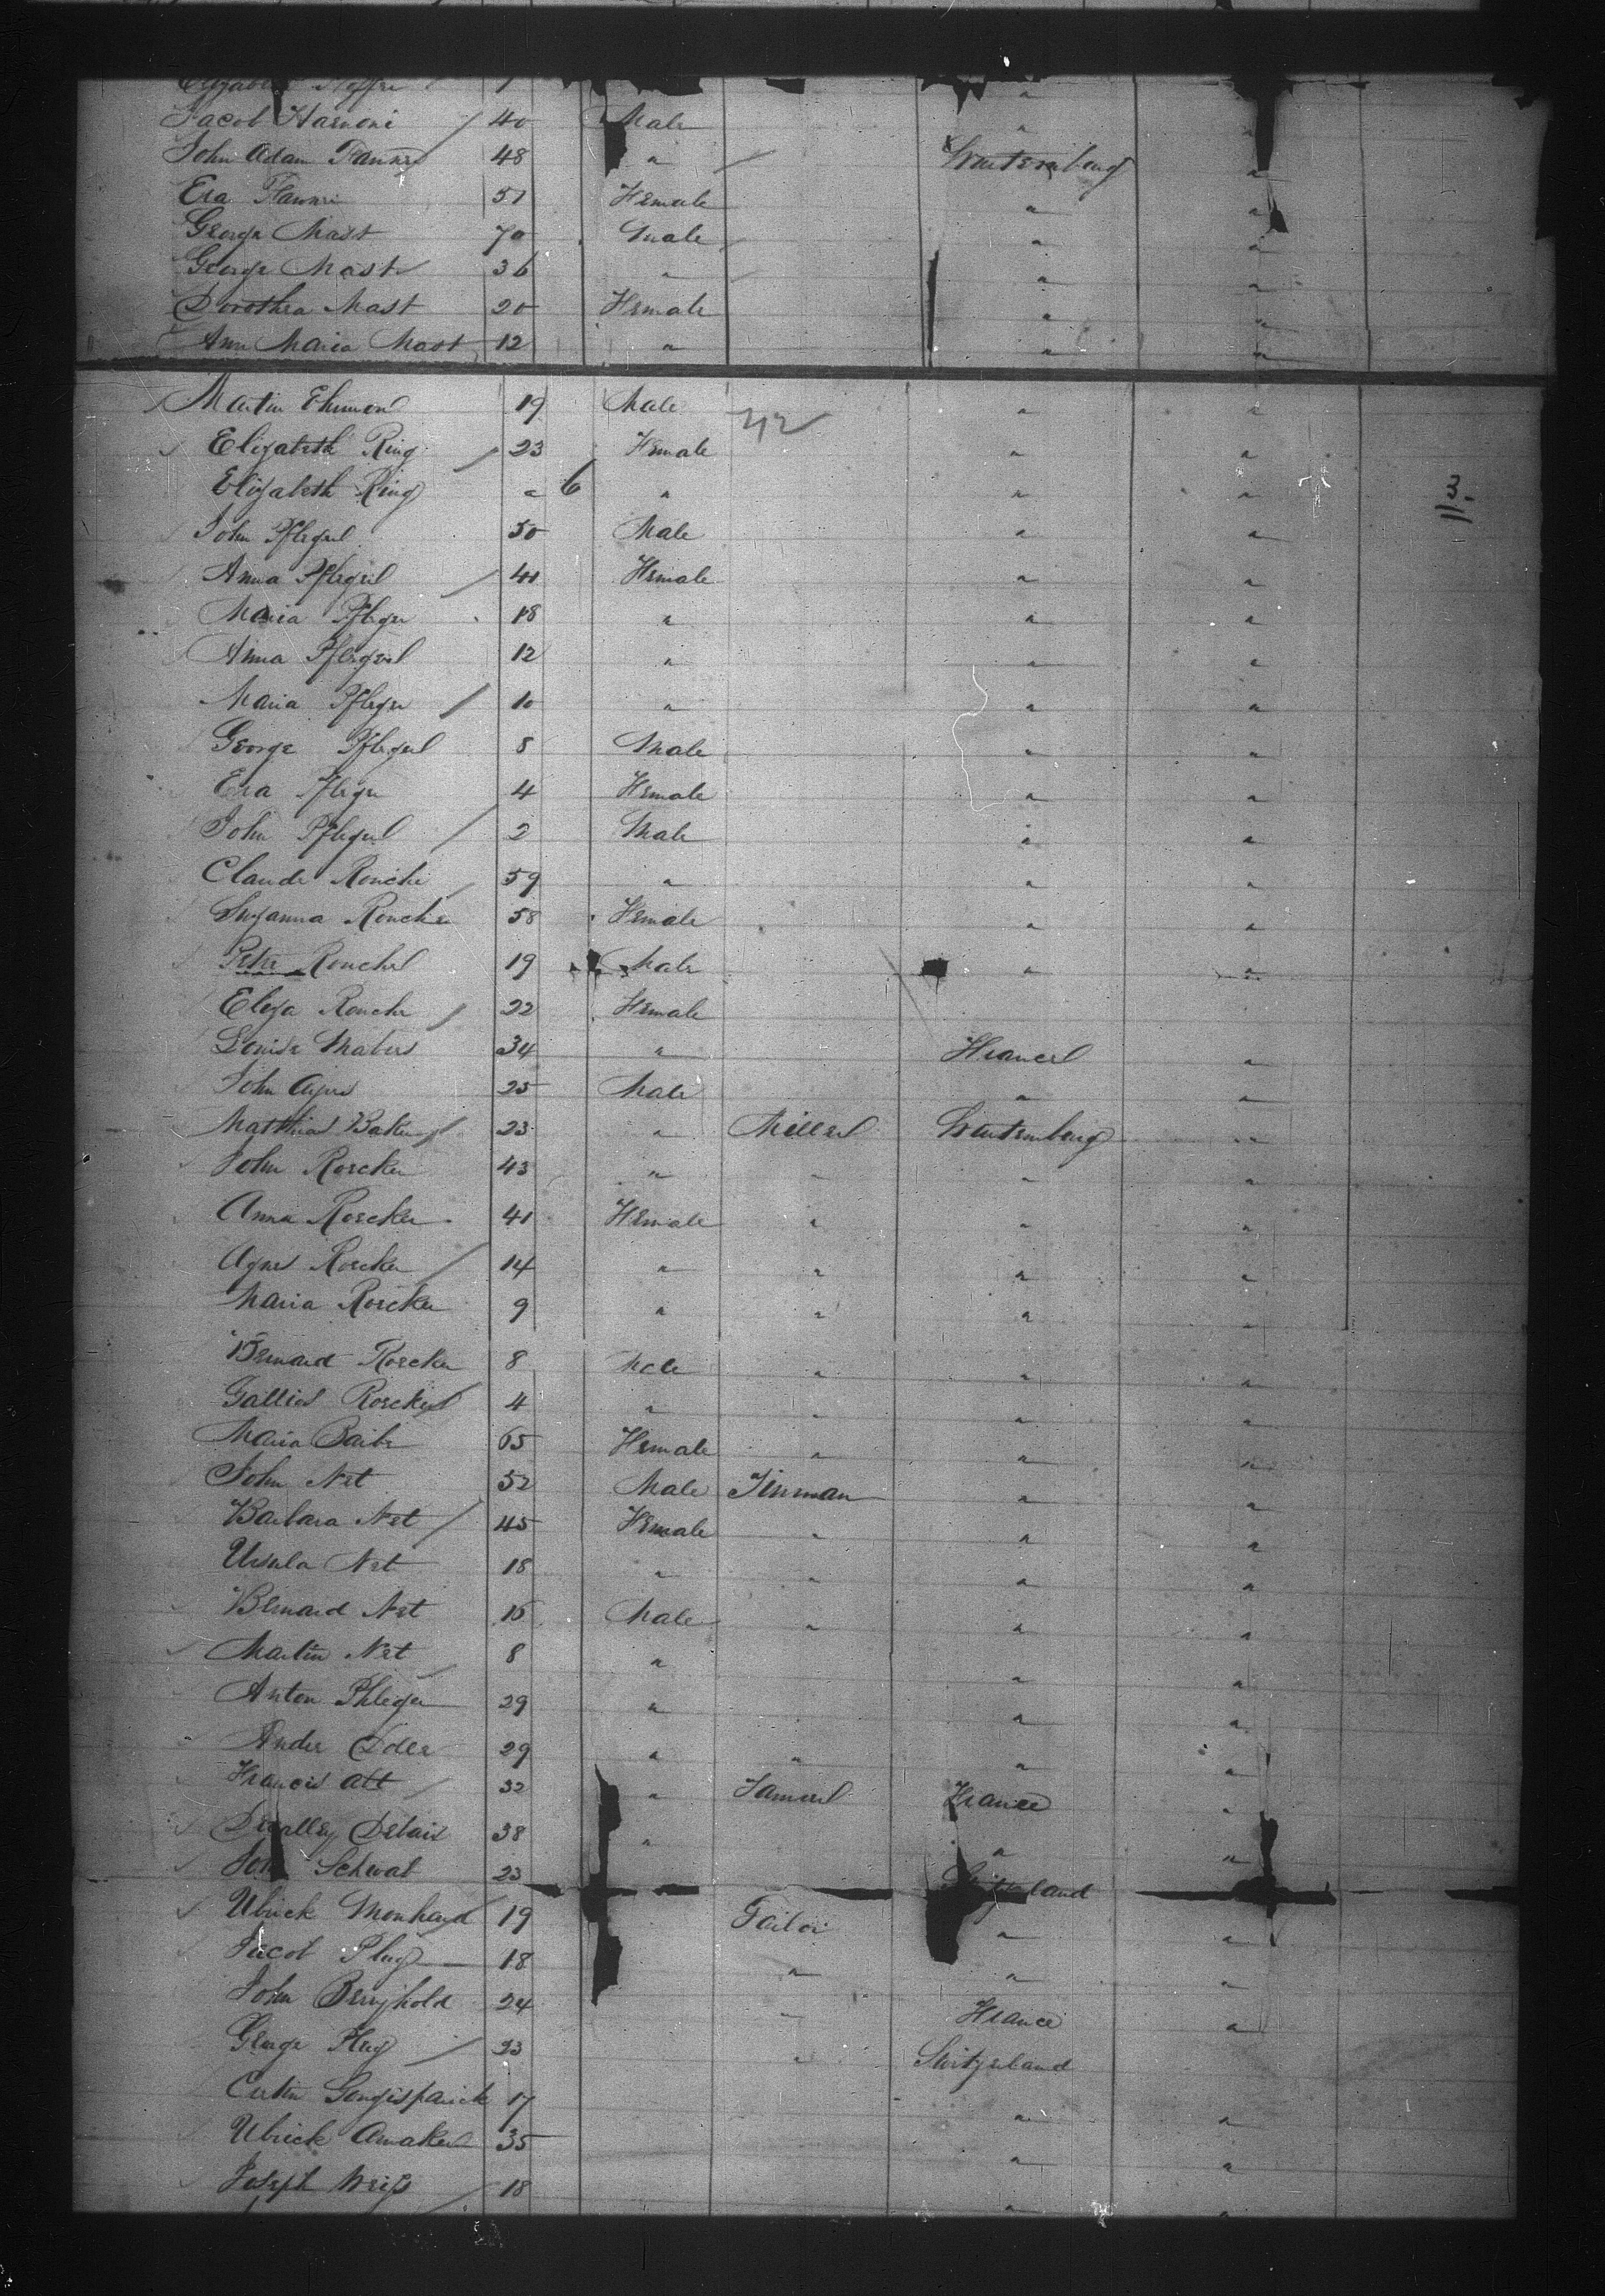 Elizabeth 1 "
Jacob Harnoni 40 Male " "
John Adam 48 " Wurtemburg "
Eva 51 Female " "
George Mast 70 Male " "
George Mast 36 " " "
Dorothea Mast 20 Female " "
Ann Maria Mast 12 " " "
Martin 19 Male 42 " "
Elizabeth Ring 23 Female " "
Elizabeth Ring " 6 " " " 113.
John Pflegel 50 Male " "
Anna Pflegel 41 Female " "
Maria Pfleger 18 " " "
Anna Pflegel 12 " " "
Maria Pfleger 10 " " "
George Pflegel 8 Male " "
Eva Pfleger 4 Female " "
John Pflegel 2 Male " "
Claude Ronche 59 " " "
Suzanna Ronche 58 Female " "
Peter Ronchel 19 Male " "
Eliza Ronche 22 Female
Louise 34 " France "
John 25 Male " "
Matthias Baker 23 " Miller Wurtemburg "
John Roecker 43 " " " "
Anna Roecker 41 Female " " "
Agnes Roecker 14 " " " "
Maria Roecker 9 " " " "
Bernard Roecker 8 Male " " "
Gallies Roecker 4 " " " "
Maria 65 Female " " "
John Net 52 Male Tinman " "
Barbara Net 45 Female " " "
Ursula Net 18 " " " "
Bernard Net 15 Male " " "
Martin Net 8 " " "
Anton Phleger 29 " " "
Ander 29 " " " "
Francis Alt 32 " France "
Delais 38 " " "
John Schwab 23 Switzerland
Ulrick 19 Tailor " "
Jacob Plug 18 " " "
John 24 " France "
George Plug 23 " Switzerland
17 " "
Ulrick Amaker 35 " "
Joseph Weiss 18 " "